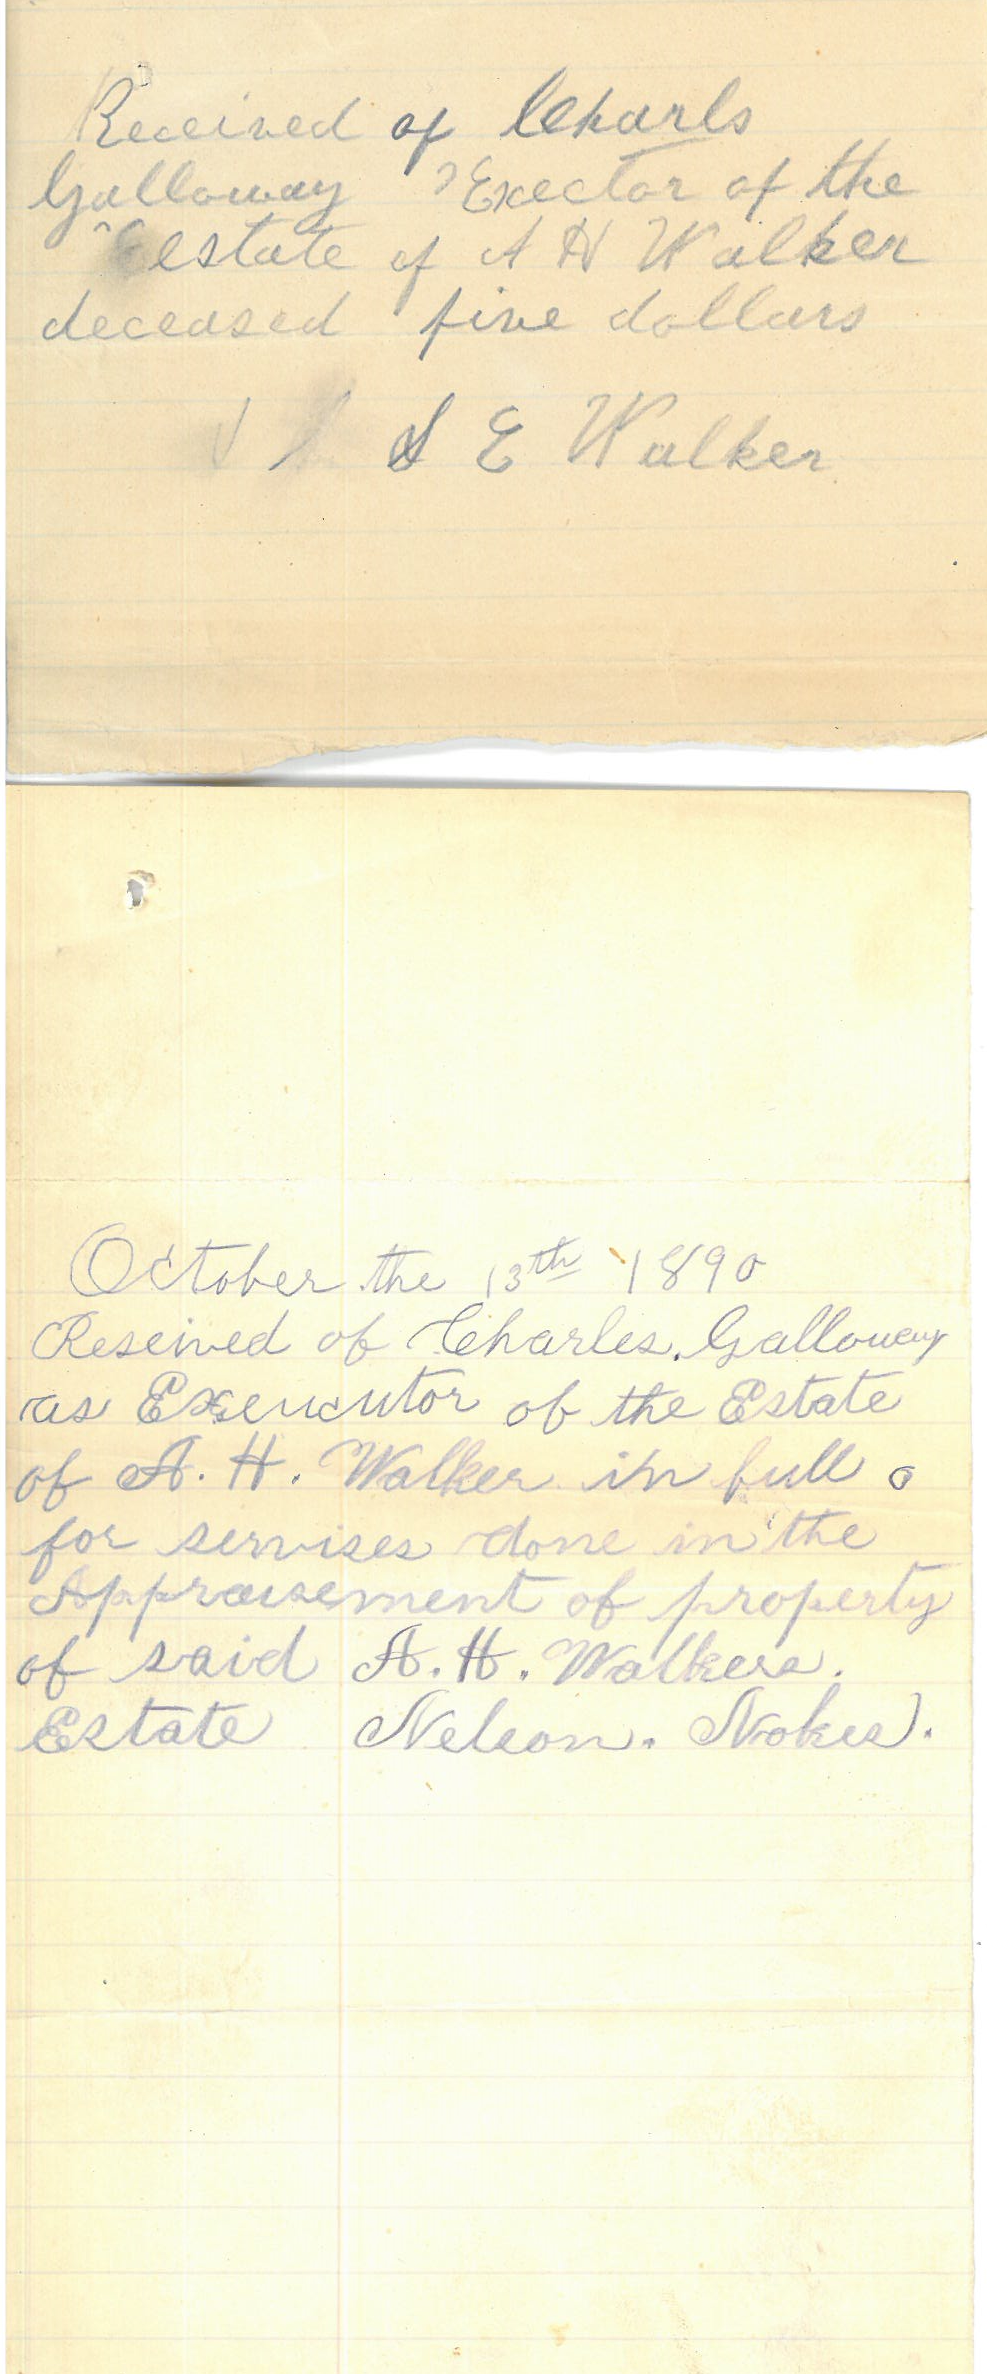 Received of Charls
Galloway Exector of the
estate of A H Walker
deceased five dollars
S E Walker
October the 13th 1890
Reseived of Charles. Galloway
as Exseucutor of the Estate
of A. H. Walker in full
for servises done in the
Appraisement of property
of said A. H. Walkers.
Estate Nelson. Nokes.